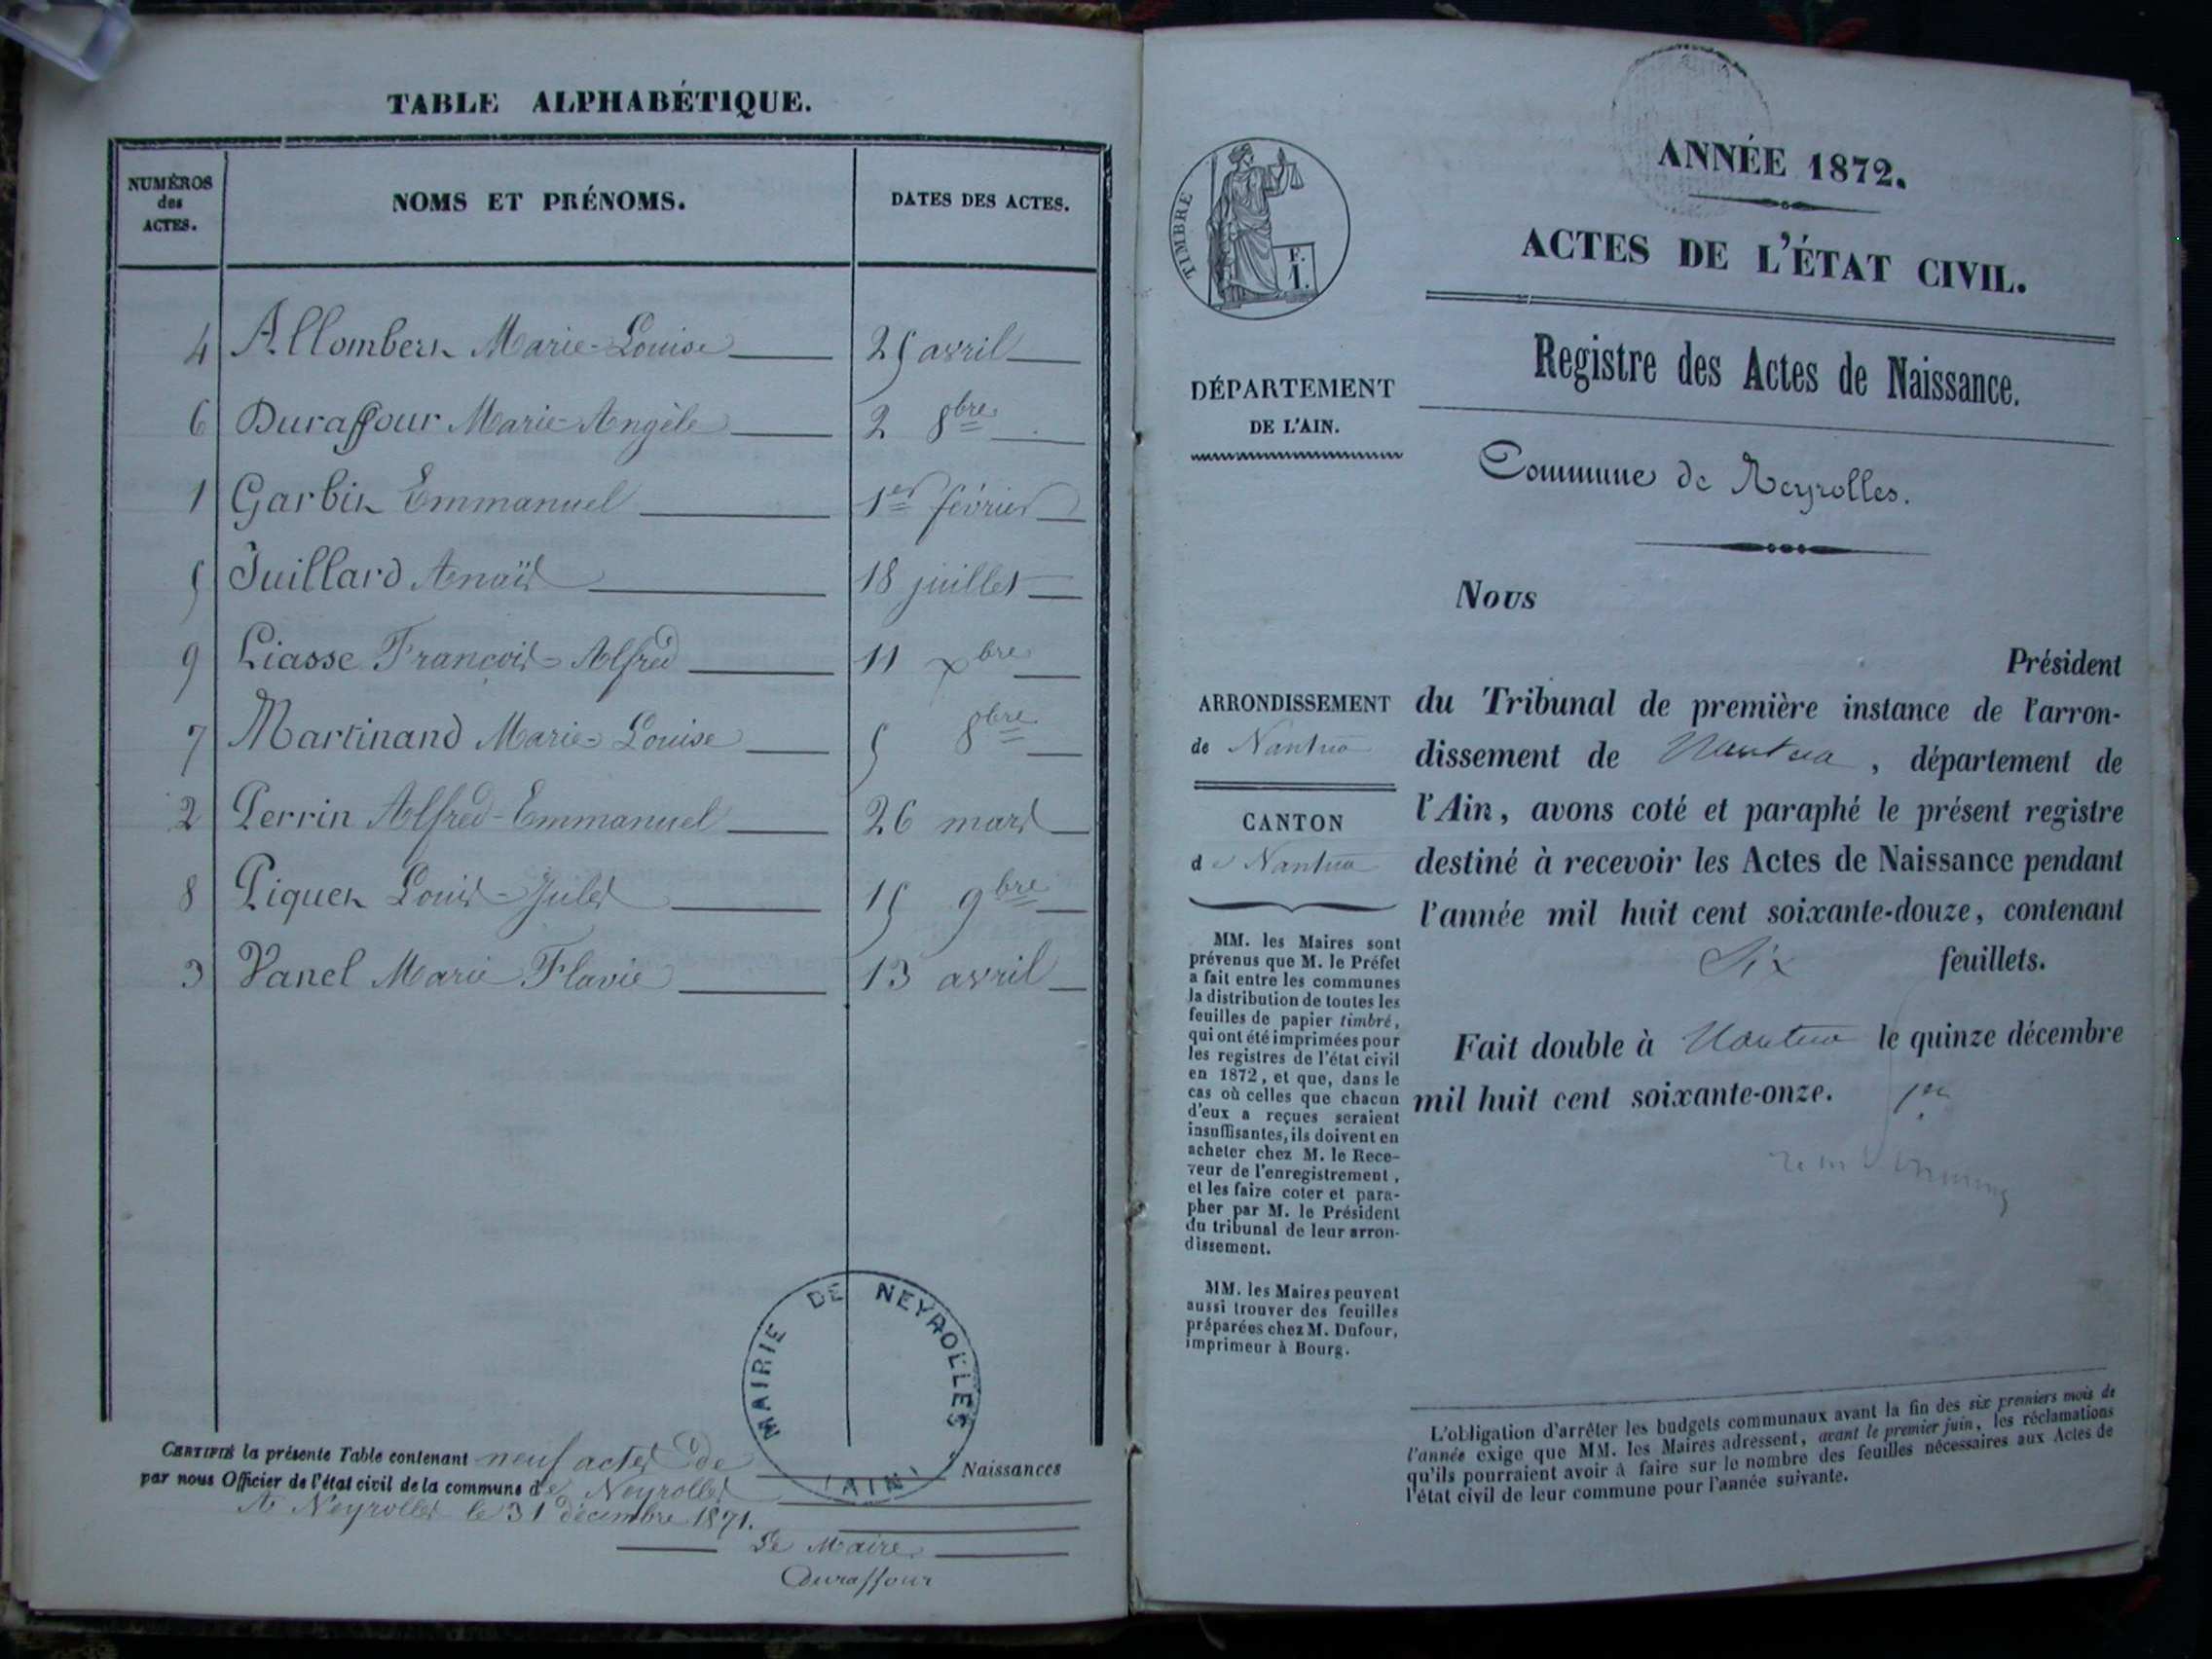 TABLE ALPHABÉTIQUE.
NUMÉROS des ACTES.
NOMS ET PRÉNOMS.
DATES DES ACTES.
4 Allombert Marie-Louise 25 avril
6 Duraffour Marie-Angèle 2 8bre
1 Garbit Emmanuel 1er février
5 Juillard Anaïs 18 juillet
9 Liasse François-Alfred 11 Xbre
7 Martinand Marie-Louise 5 8bre
2 Perrin Alfred-Emmanuel 26 mars
8 Piquet Louis-Jules 15 9bre
3 Vanel Marie Flavie 13 avril
MAIRIE DE NEYROLLES
(AIN)
CERTIFIÉ la présente Table contenant neuf actes de Naissances
par nous Officier de l'état civil de la commune de Neyrolles
A Neyrolles le 31 décembre 1871.
Le Maire
Duraffour
TIMBRE
F.
1.
ANNÉE 1872.
ACTES DE L'ÉTAT CIVIL.
Registre des Actes de Naissance.
DÉPARTEMENT
DE L'AIN.
Commune de Neyrolles.
ARRONDISSEMENT
de Nantua
CANTON
de Nantua
MM. les Maires sont
prévenus que M. le Préfet
a fait entre les communes
la distribution de toutes les
feuilles de papier timbré,
qui ont été imprimées pour
les registres de l'état civil
en 1872, et que, dans le
cas où celles que chacun
d'eux a reçues seraient
insuffisantes, ils doivent en
acheter chez M. le Rece-
veur de l'enregistrement,
et les faire coter et para-
pher par M. le Président
du tribunal de leur arron-
dissement.
MM. les Maires peuvent
aussi trouver des feuilles
préparées chez M. Dufour,
imprimeur à Bourg.
Nous
Président
du Tribunal de première instance de l'arron-
dissement de Nantua, département de
l'Ain, avons coté et paraphé le présent registre
destiné à recevoir les Actes de Naissance pendant
l'année mil huit cent soixante-douze, contenant
Six feuillets.
Fait double à Nantua le quinze décembre
mil huit cent soixante-onze.
L'obligation d'arrêter les budgets communaux avant la fin des six premiers mois de
l'année exige que MM. les Maires adressent, avant le premier juin, les réclamations
qu'ils pourraient avoir à faire sur le nombre des feuilles nécessaires aux Actes de
l'état civil de leur commune pour l'année suivante.